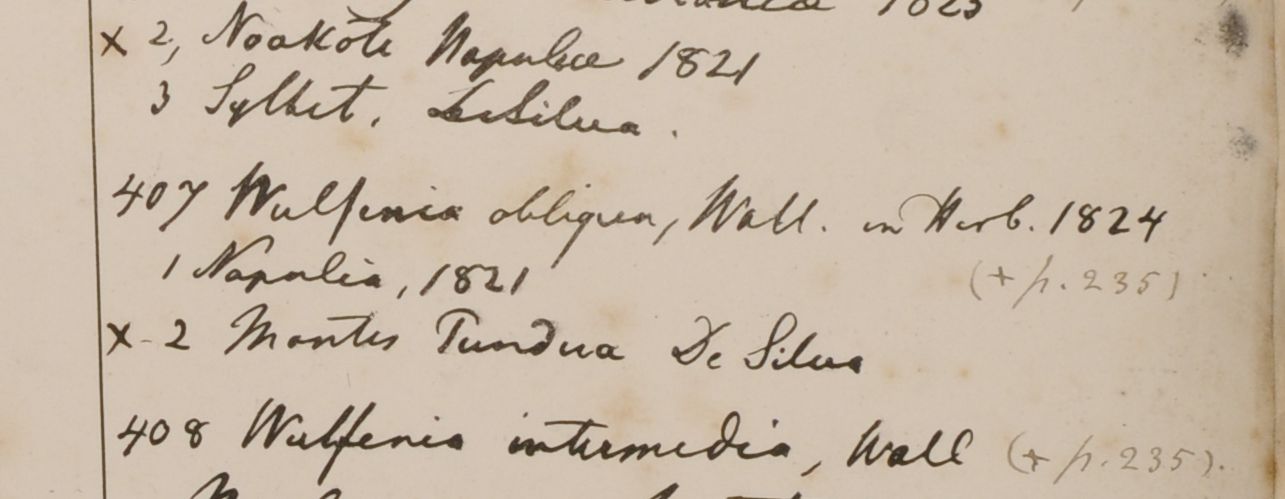 1823
x 2, Noakote Napalia 1821
3 Sylhet. DeSilva.
407 Wulfenia obliqua, Wall. in Herb. 1824
1 Napalia, 1821 (+ p. 235)
x 2 Montes Tundua De Silva
408 Wulfenia intermedia, Wall (+ p. 235).